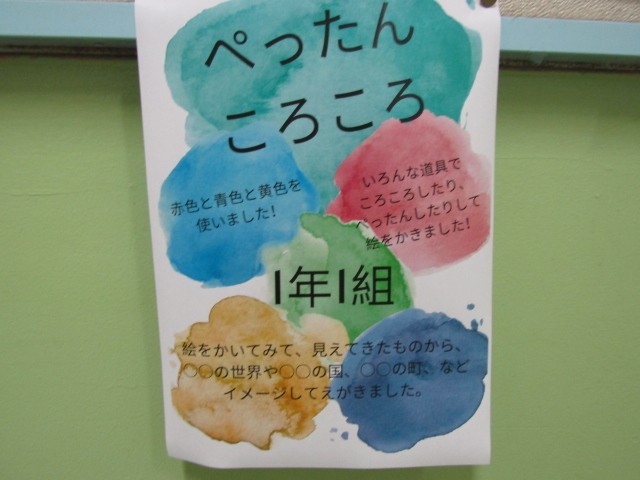 ぺったん
ころころ
赤色と青色と黄色を
使いました!
いろんな道具で
ころころしたり、
ぺったんしたりして
絵をかきました!
1年1組
絵をかいてみて、見えてきたものから、
○○の世界や○○の国、○○の町、など
イメージしてえがきました。